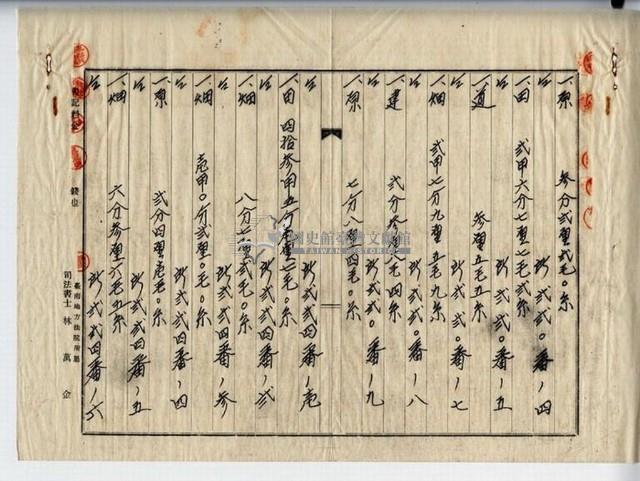 一、原 参分弐厘弐毛〇糸
仝 所弐弐〇番ノ四
一、田 弐甲六分七厘七毛弐糸
仝 所弐弐〇番ノ五
一、道 参厘五毛五糸
仝 所弐弐〇番ノ七
一、畑 弐甲七分九厘五毛九糸
仝 所弐弐〇番ノ八
一、建
仝 所弐弐〇番ノ九
一、原 七分八厘四毛〇糸
仝 所弐弐四番ノ壱
一、田 四拾参甲五分
仝 所弐弐四番ノ弐
一、畑 八分七厘弐毛〇糸
仝 所弐弐四番ノ参
一、畑 壱甲〇分弐厘〇毛〇糸
仝 所弐弐四番ノ四
一、原 弐分四厘壱毛〇糸
仝 所弐弐四番ノ五
一、畑 六分参厘六毛五糸
仝 所弐弐四番ノ六
登記料金 錢也
臺南地方法院所屬
司法書士 林萬金
國史館臺灣文獻館
TAIWAN HISTORICA